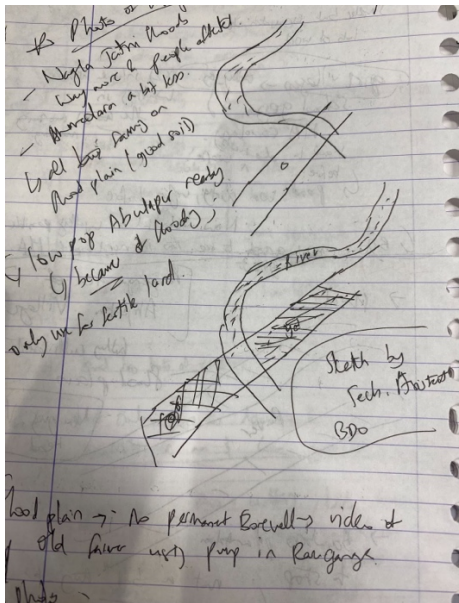 Photo of
- Nayla Jatni floods
Why more & people affected
- a bit less.
↳ all keep farming on
flood plain (good soil)
↳ low pop nearby
↳ because of floods,
only use for fertile land.
River
Sketch by
Tech. Assistant
BDO
flood plain → No permanent Borewell → video of
old farmer using pump in
photo :